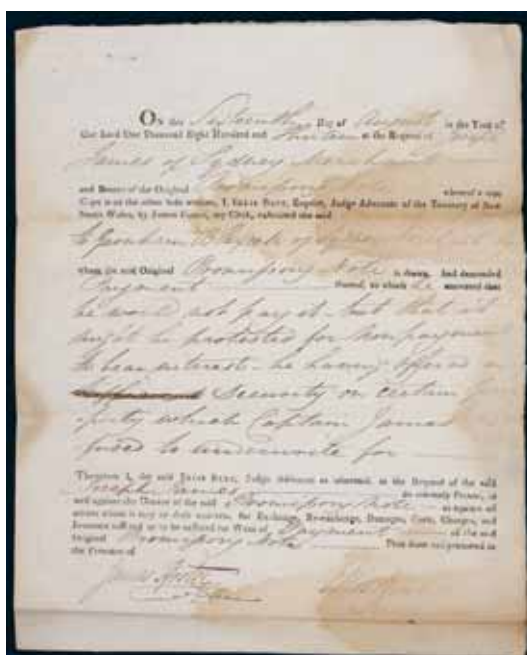 On this Sixteenth Day of August in the Year of
Our Lord One Thousand Eight Hundred and thirteen at the Request of Joseph
James of Sydney Merchant
and Bearer of the Original Promissory Note whereof a true
Copy is on the other side written, I, Ellis Bent, Esquire, Judge Advocate of the Territory of New
South Wales, by James Foster, my Clerk, exhibited the said
to
when the said Original Promissory Note is drawn, And demanded
Payment thereof, to which he answered that
he would not pay it - but that it
might be protested for non payment
to bear interest - he having offered
Security on certain
which Captain James
fused to underwrite for
Therefore I, the said Ellis Bent, Judge Advocate as aforesaid, at the Request of the said
Joseph James do solemnly Protest, as
well against the Drawer of the said Promissory Note as against all
others whom it may or doth concern, for Exchange, Re-exchange, Damages, Costs, Charges, and
Interests suffered or to be suffered for Want of Payment of the said
Original Promissory Note Thus done and protested in
the Presence of
James Foster